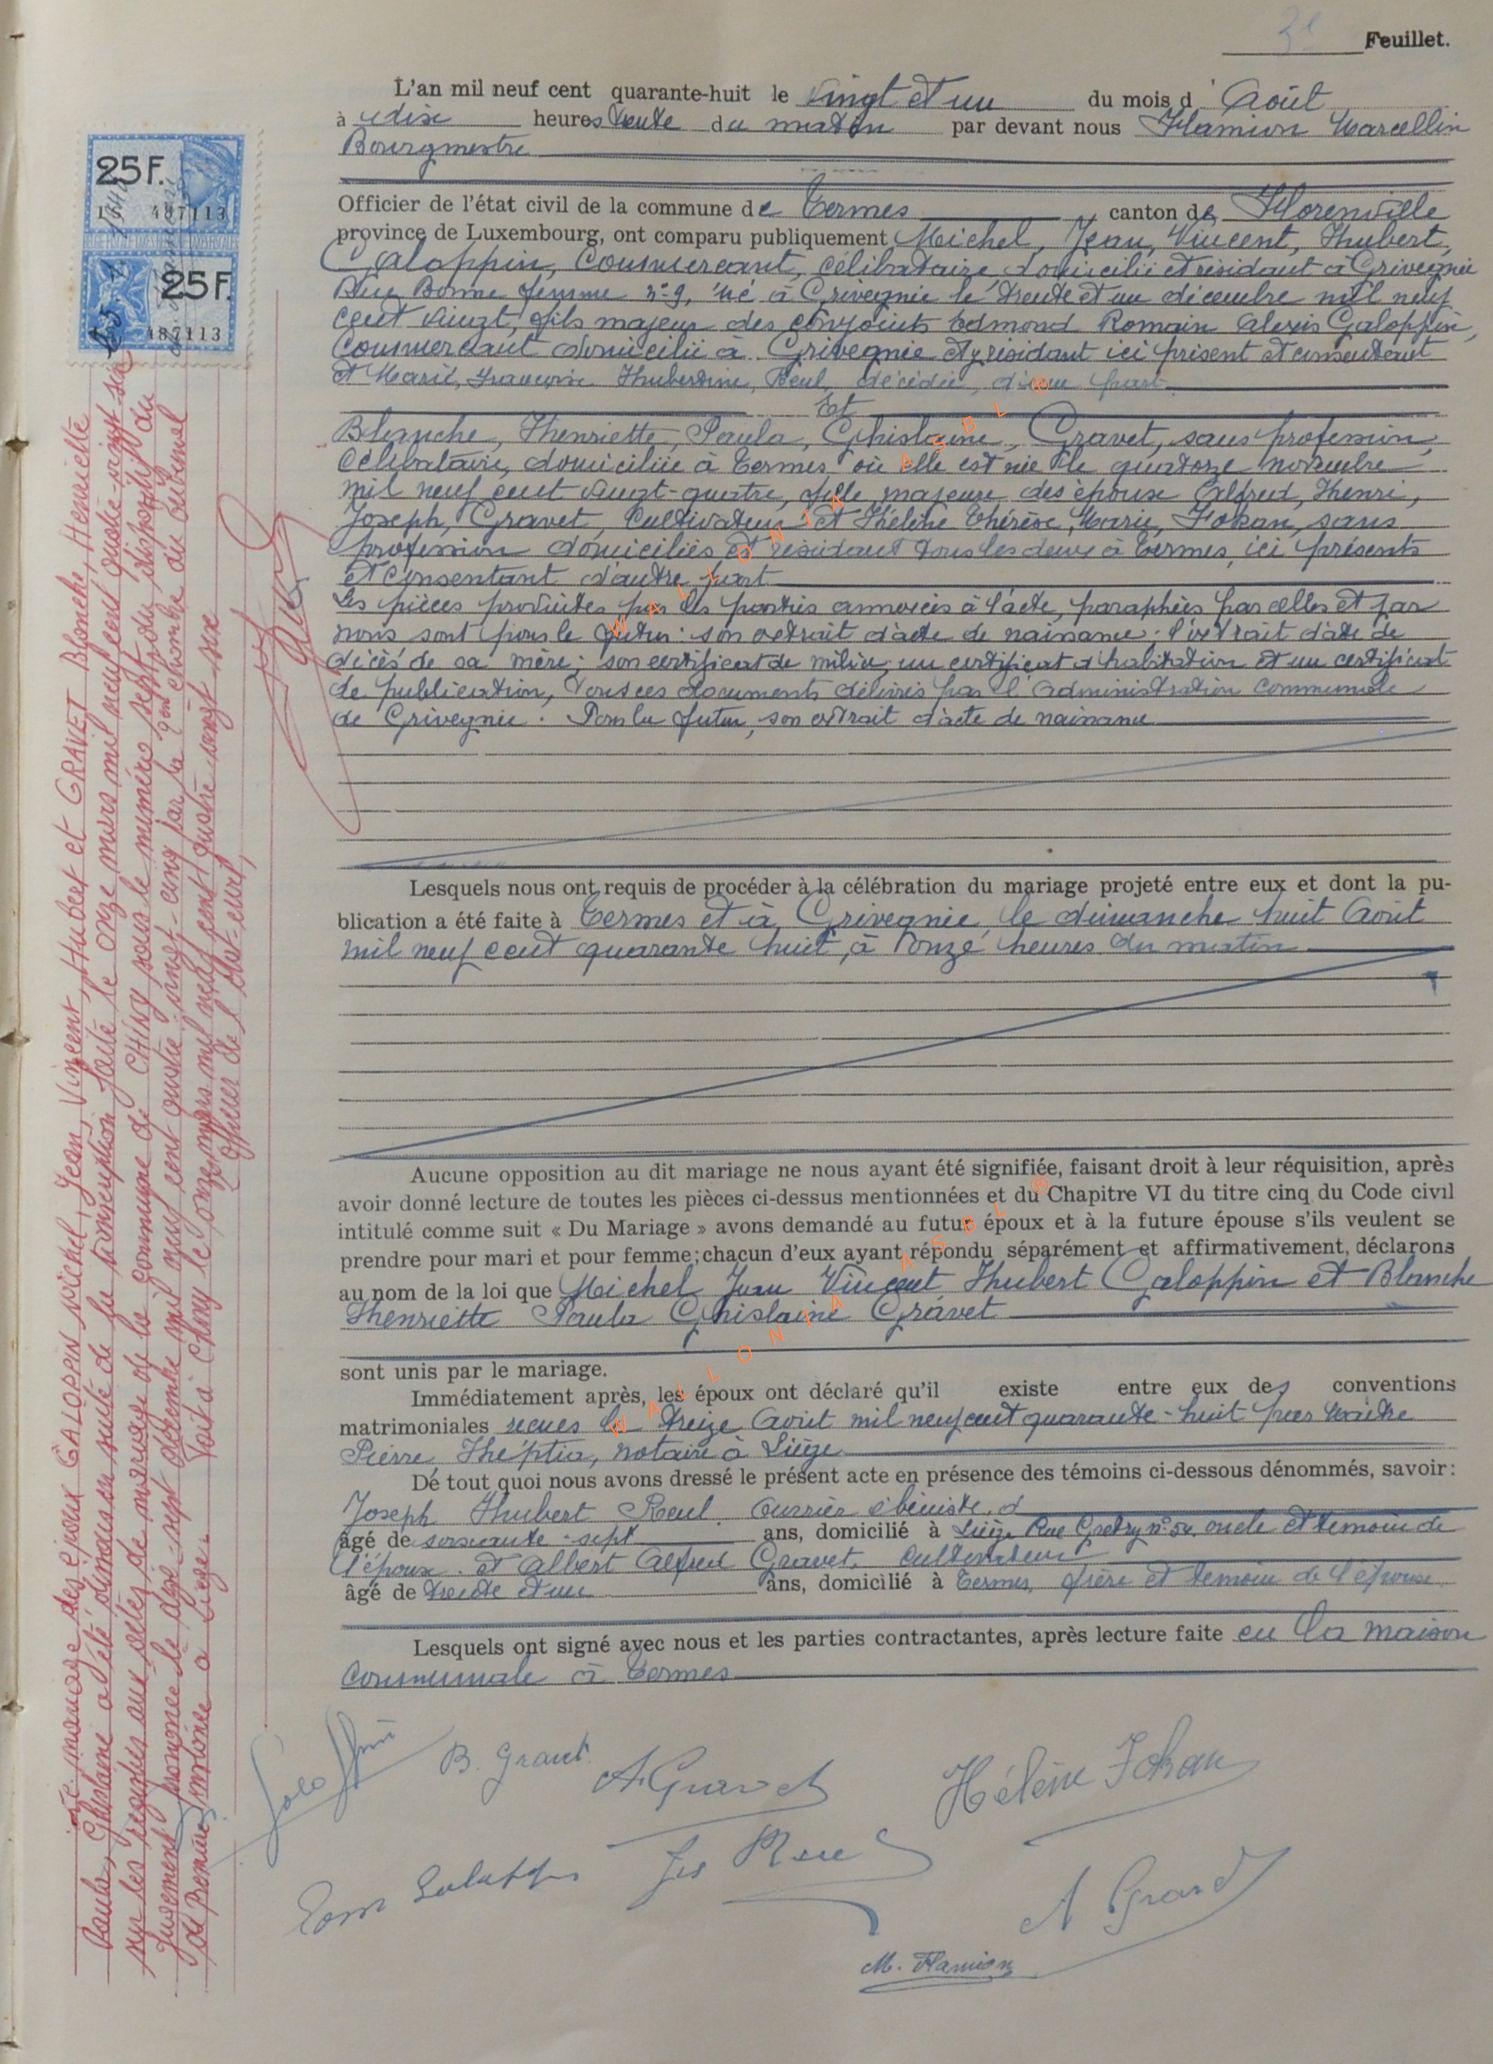 3e Feuillet.
L'an mil neuf cent quarante-huit le vingt et un du mois d' Août
à dix heures trente du matin par devant nous Flamion Marcellin
Bourgmestre
Officier de l'état civil de la commune de Termes canton de Florenville
province de Luxembourg, ont comparu publiquement Michel, Jean, Vincent, Hubert,
Galoppin, commerçant, célibataire domicilié et résidant à Grivegnée
Rue Bonne femme n° 9, né à Grivegnée le trente et un décembre mil neuf
cent vingt, fils majeur des conjoints Edmond Romain Alexis Galoppin,
commerçant domicilié à Grivegnée et y résidant ici présent et consentant
et Marie, Françoise Hubertine, Reul, décédée, d'une part
Et
Blanche, Henriette, Paula, Ghislaine, Gravet, sans profession,
célibataire, domiciliée à Termes où elle est née le quatorze novembre
mil neuf cent vingt-quatre, fille majeure des époux Alfred, Henri,
Joseph, Gravet, Cultivateur et Hélène Thérèse, Marie, Fokan, sans
profession domiciliés et résidant tous les deux à Termes, ici présents
et consentant d'autre part
Les pièces produites par les parties annexées à l'acte, paraphées par celles et par
nous sont pour le futur : son extrait d'acte de naissance ; l'extrait d'acte de
décès de sa mère ; son certificat de milice ; un certificat d'habitation et un certificat
de publication, tous ces documents délivrés par l'administration communale
de Grivegnée. Pour la future, son extrait d'acte de naissance
Lesquels nous ont requis de procéder à la célébration du mariage projeté entre eux et dont la pu-
blication a été faite à Termes et à Grivegnée le dimanche huit Août
mil neuf cent quarante huit, à onze heures du matin
Aucune opposition au dit mariage ne nous ayant été signifiée, faisant droit à leur réquisition, après
avoir donné lecture de toutes les pièces ci-dessus mentionnées et du Chapitre VI du titre cinq du Code civil
intitulé comme suit « Du Mariage » avons demandé au futur époux et à la future épouse s'ils veulent se
prendre pour mari et pour femme; chacun d'eux ayant répondu séparément et affirmativement, déclarons
au nom de la loi que Michel Jean Vincent Hubert Galoppin et Blanche
Henriette Paula Ghislaine Gravet
sont unis par le mariage.
Immédiatement après, les époux ont déclaré qu'il existe entre eux des conventions
matrimoniales reçues le treize Août mil neuf cent quarante-huit par Maître
Pierre, notaire à Liège
De tout quoi nous avons dressé le présent acte en présence des témoins ci-dessous dénommés, savoir:
Joseph Hubert Reul. ouvrier ébéniste,
âgé de soixante-sept ans, domicilié à Liège Rue Grétry n° 54, oncle et témoin de
l'époux. et Albert Alfred Gravet, cultivateur
âgé de trente et un ans, domicilié à Termes, frère et témoin de l'épouse
Lesquels ont signé avec nous et les parties contractantes, après lecture faite en la maison
communale à Termes
Galoppin B. Gravet A. Gravet Hélène Fokan
Edm Galoppin Jos Reul A Gravet
M. Flamion
25 F.
487113
25 F.
487113
Le mariage des époux GALOPPIN Michel, Jean, Vincent, Hubert et GRAVET Blanche, Henriette
Paula, Ghislaine a été dissous en suite de la transcription faite le onze mars mil neuf cent quatre-vingt-six
sur les registres aux actes de mariage de la commune de CHINY sous le numéro sept du dispositif du
Jugement prononcé le dix-sept décembre mil neuf cent quatre-vingt-cinq par la chambre du tribunal
de Première instance à Liège. Fait à Chiny le onze mars mil neuf cent quatre-vingt-six
L'Officier de l'état-civil,
WALLONIA ASBL ®
WALLONIA ASBL ®